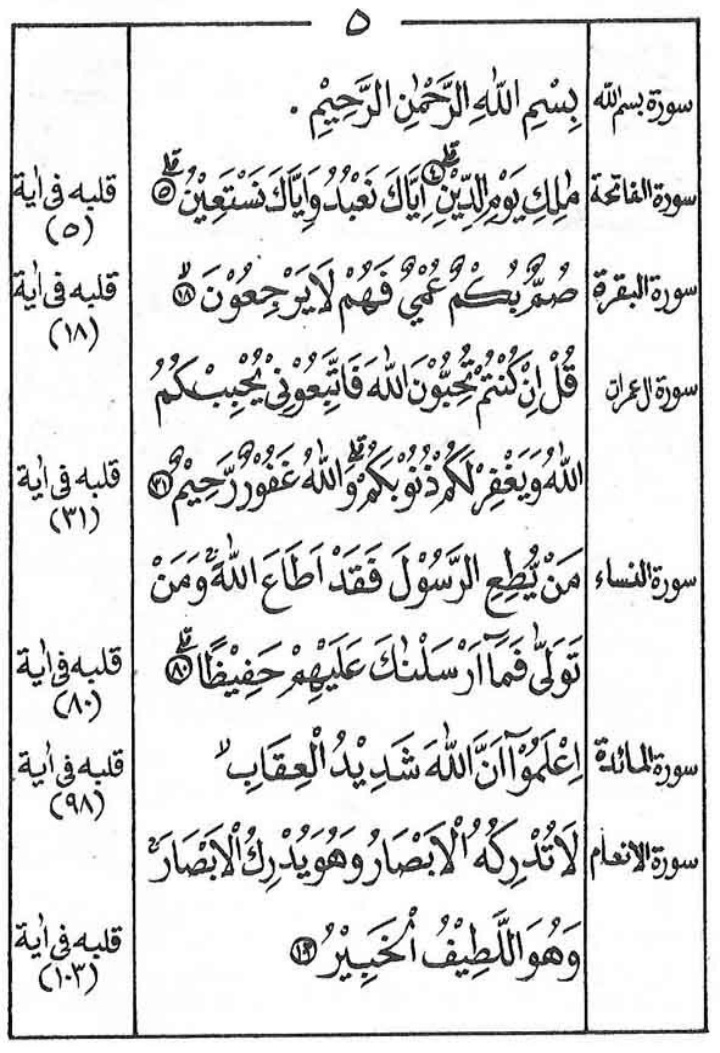 ٥
سورة بسم الله بِسْمِ اللّٰهِ الرَّحْمٰنِ الرَّحِيْمِ .
سورة الفاتحة مٰلِكِ يَوْمِ الدِّيْنِ ۗ ﴿٤﴾ اِيَّاكَ نَعْبُدُ وَاِيَّاكَ نَسْتَعِيْنُ ۗ ﴿٥﴾ قلبه فى اٰية
(٥)
سورة البقرة صُمٌّۢ بُكْمٌ عُمْيٌ فَهُمْ لَا يَرْجِعُوْنَۙ ﴿١٨﴾ قلبه فى اٰية
(١٨)
سورة ال عمران قُلْ اِنْ كُنْتُمْ تُحِبُّوْنَ اللّٰهَ فَاتَّبِعُوْنِيْ يُحْبِبْكُمُ
اللّٰهُ وَيَغْفِرْ لَكُمْ ذُنُوْبَكُمْ ۗ وَاللّٰهُ غَفُوْرٌ رَّحِيْمٌ ﴿٣١﴾ قلبه فى اٰية
(٣١)
سورة النساء مَنْ يُّطِعِ الرَّسُوْلَ فَقَدْ اَطَاعَ اللّٰهَ ۚ وَمَنْ
تَوَلّٰى فَمَآ اَرْسَلْنٰكَ عَلَيْهِمْ حَفِيْظًا ۗ ﴿٨٠﴾ قلبه فى اٰية
(٨٠)
سورة المائدة اِعْلَمُوْٓا اَنَّ اللّٰهَ شَدِيْدُ الْعِقَابِۙ قلبه فى اٰية
(٩٨)
سورة الانعام لَا تُدْرِكُهُ الْاَبْصَارُ وَهُوَ يُدْرِكُ الْاَبْصَارَ ۚ
وَهُوَ اللَّطِيْفُ الْخَبِيْرُ ﴿١٠٣﴾ قلبه فى اٰية
(١٠٣)